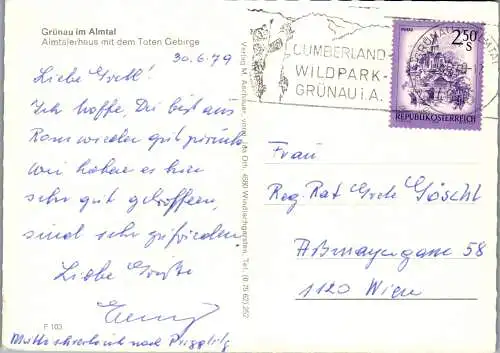 Grünau im Almtal
Almtalerhaus mit dem Toten Gebirge
30.6.79
Liebe Gretl!
Ich hoffe, Du bist aus
Rom wieder gut zurück
wir haben es hier
sehr gut getroffen,
sind sehr zufrieden.
Liebe Grüße
F 103
Verlag M.
4580 Windischgarsten, Tel. (0 75 62) 252
CUMBERLAND
WILDPARK-
GRÜNAU i.A.
2.50
S
REPUBLIK ÖSTERREICH
Frau
Reg. Rat Grete Göschl
Aßmayergasse 58
1120 Wien